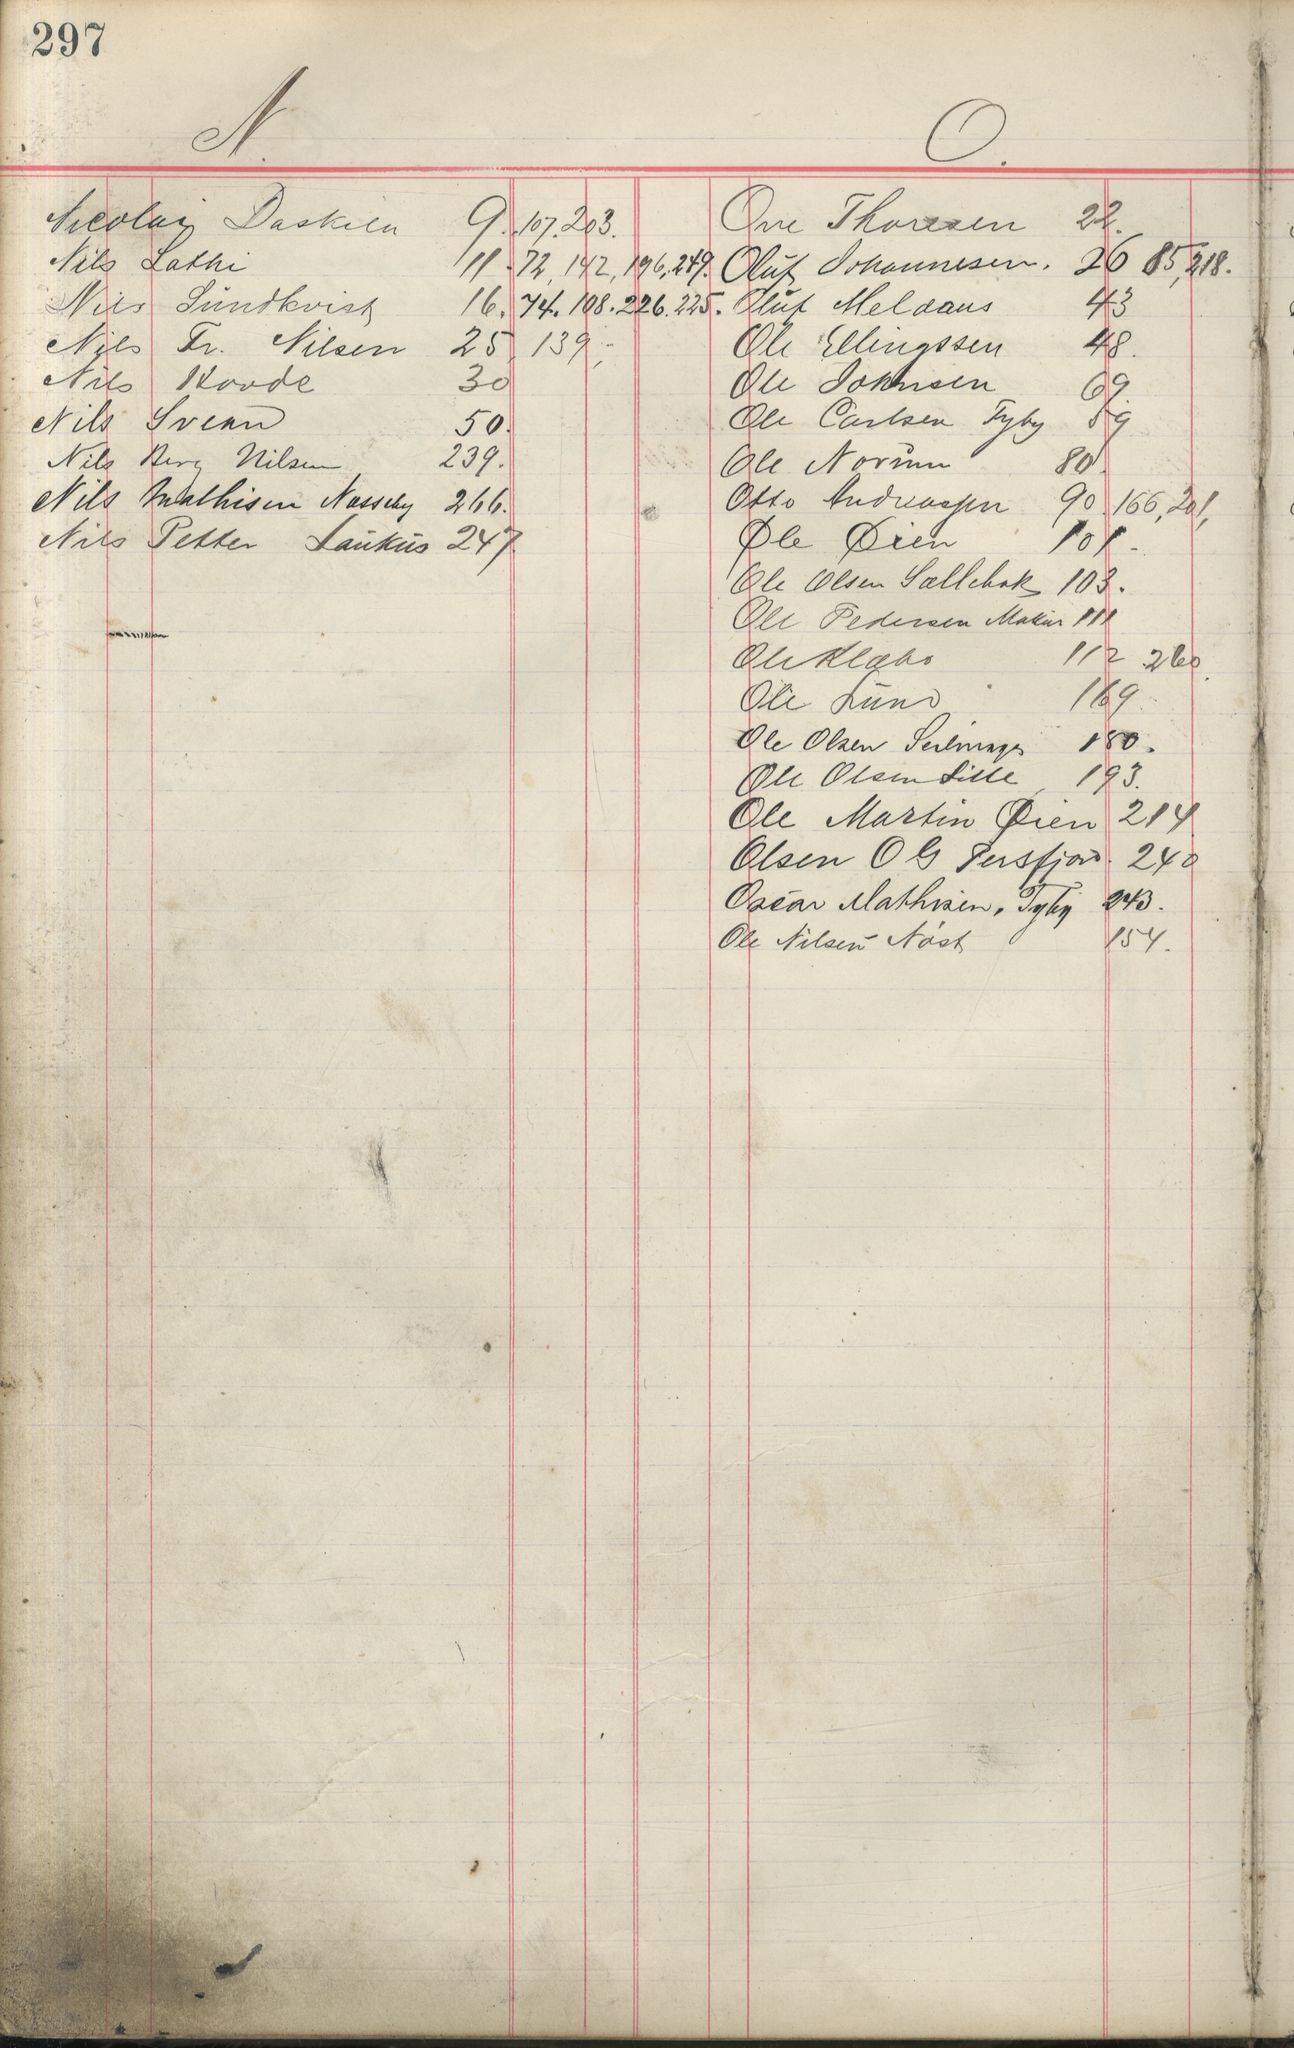 297
N.
Nicolai Daskila 9. 107. 203.
Nils Lathi 11. 72, 142, 196, 249.
Nils Sundkvist 16. 74. 108. 226. 225.
Nils Fr. Nilsen 25 139
Nils Hovde 30
Nils Svenn 50.
Nils Berg Nilsen 239.
Nils Mathisen Nasseby 266.
Nils Petter Laukus 247
O.
Ove Thoresen 22.
Oluf Johannesen. 26 85, 218.
Oluf Meldaus 43
Ole Ellingssen 48.
Ole Johnsen 69
Ole Carlsen Tyby 59
Ole Norum 80.
Otto Andreassen 90. 166, 201,
Ole Øien 101.
Ole Olsen 103.
Ole Pedersen Makur 111
Ole Klæbo 112 260.
Ole Lund 169
Ole Olsen 180.
Ole Olsen Lille 193.
Ole Martin Øien 214
Olsen O G Persfjord. 240
Oscar Mathisen, Tyby 243.
Ole Nilsen Nøst 154.